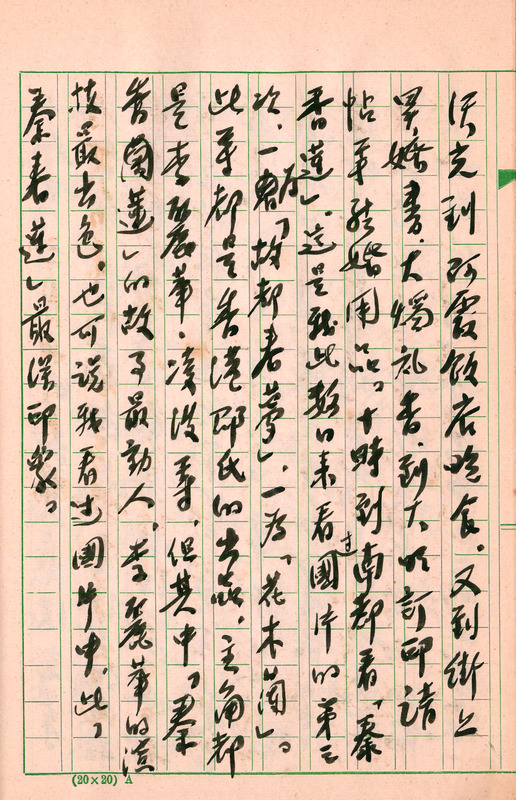 先到阿霞飯店晚食。又到街上
買婚書、大燭、礼香、到大明訂印請
帖等結婚用品。十時到南都看「秦
香蓮」。這是我此数日来看過國片的第三
次,一為「故都春夢」,一為「花木蘭」。
此等都是香港邵氏的出品,主角都
是李麗華、凌波等,但其中「秦
香蓮」的故事最動人,李麗華的演
技最出色,也可說我看过國片中,此「
秦香蓮」最深印象。
(20×20) A